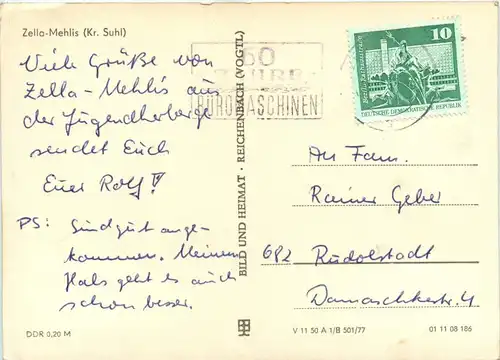 Zella-Mehlis (Kr. Suhl)
Viele Grüße von
Zella-Mehlis aus
der Jugendherberge
sendet Euch
Euer Rolf!
PS: Sind gut ange-
kommen. Meinem
Hals geht es auch
schon besser.
DDR 0,20 M
BILD UND HEIMAT · REICHENBACH (VOGTL)
BÜROMASCHINEN
10
DEUTSCHE DEMOKRATISCHE REPUBLIK
An Fam.
Rainer Geber
682 Rudolstadt
Damaschkestr. 4
V 11 50 A 1/B 501/77
01 11 08 186